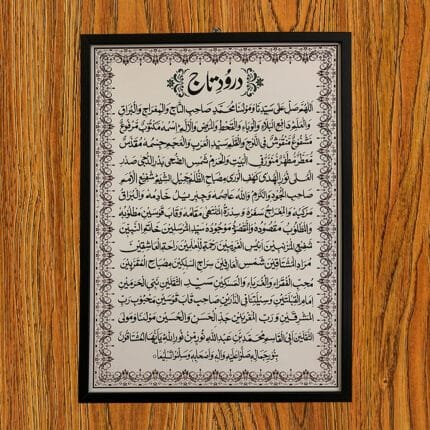 درود تاج
اللهم صل على سيدنا ومولنا محمد صاحب التاج والمعراج والبراق
والعلم دافع البلاء والوباء والقحط والمرض والالم اسمه مكتوب مرفوع
مشفوع منقوش في اللوح والقلم سيد العرب والعجم جسمه مقدس
معطر مطهر منور في البيت والحرم شمس الضحى بدر الدجى صدر
العلى نور الهدى كهف الورى مصباح الظلم جميل الشيم شفيع الامم
صاحب الجود والكرم والله عاصمه وجبريل خادمه والبراق
مركبه والمعراج سفره وسدرة المنتهى مقامه وقاب قوسين مطلوبه
والمطلوب مقصوده والمقصود موجوده سيد المرسلين خاتم النبيين
شفيع المذنبين انيس الغريبين رحمة للعلمين راحة العاشقين
مراد المشتاقين شمس العارفين سراج السالكين مصباح المقربين
محب الفقراء والغرباء والمسكين سيد الثقلين نبي الحرمين
امام القبلتين وسيلتنا في الدارين صاحب قاب قوسين محبوب رب
المشرقين و رب المغربين جد الحسن والحسين مولنا ومولى
الثقلين ابي القاسم محمد بن عبد الله نور من نور الله يايها المشتاقون
بنور جماله صلوا عليه واله واصحابه وسلموا تسليما